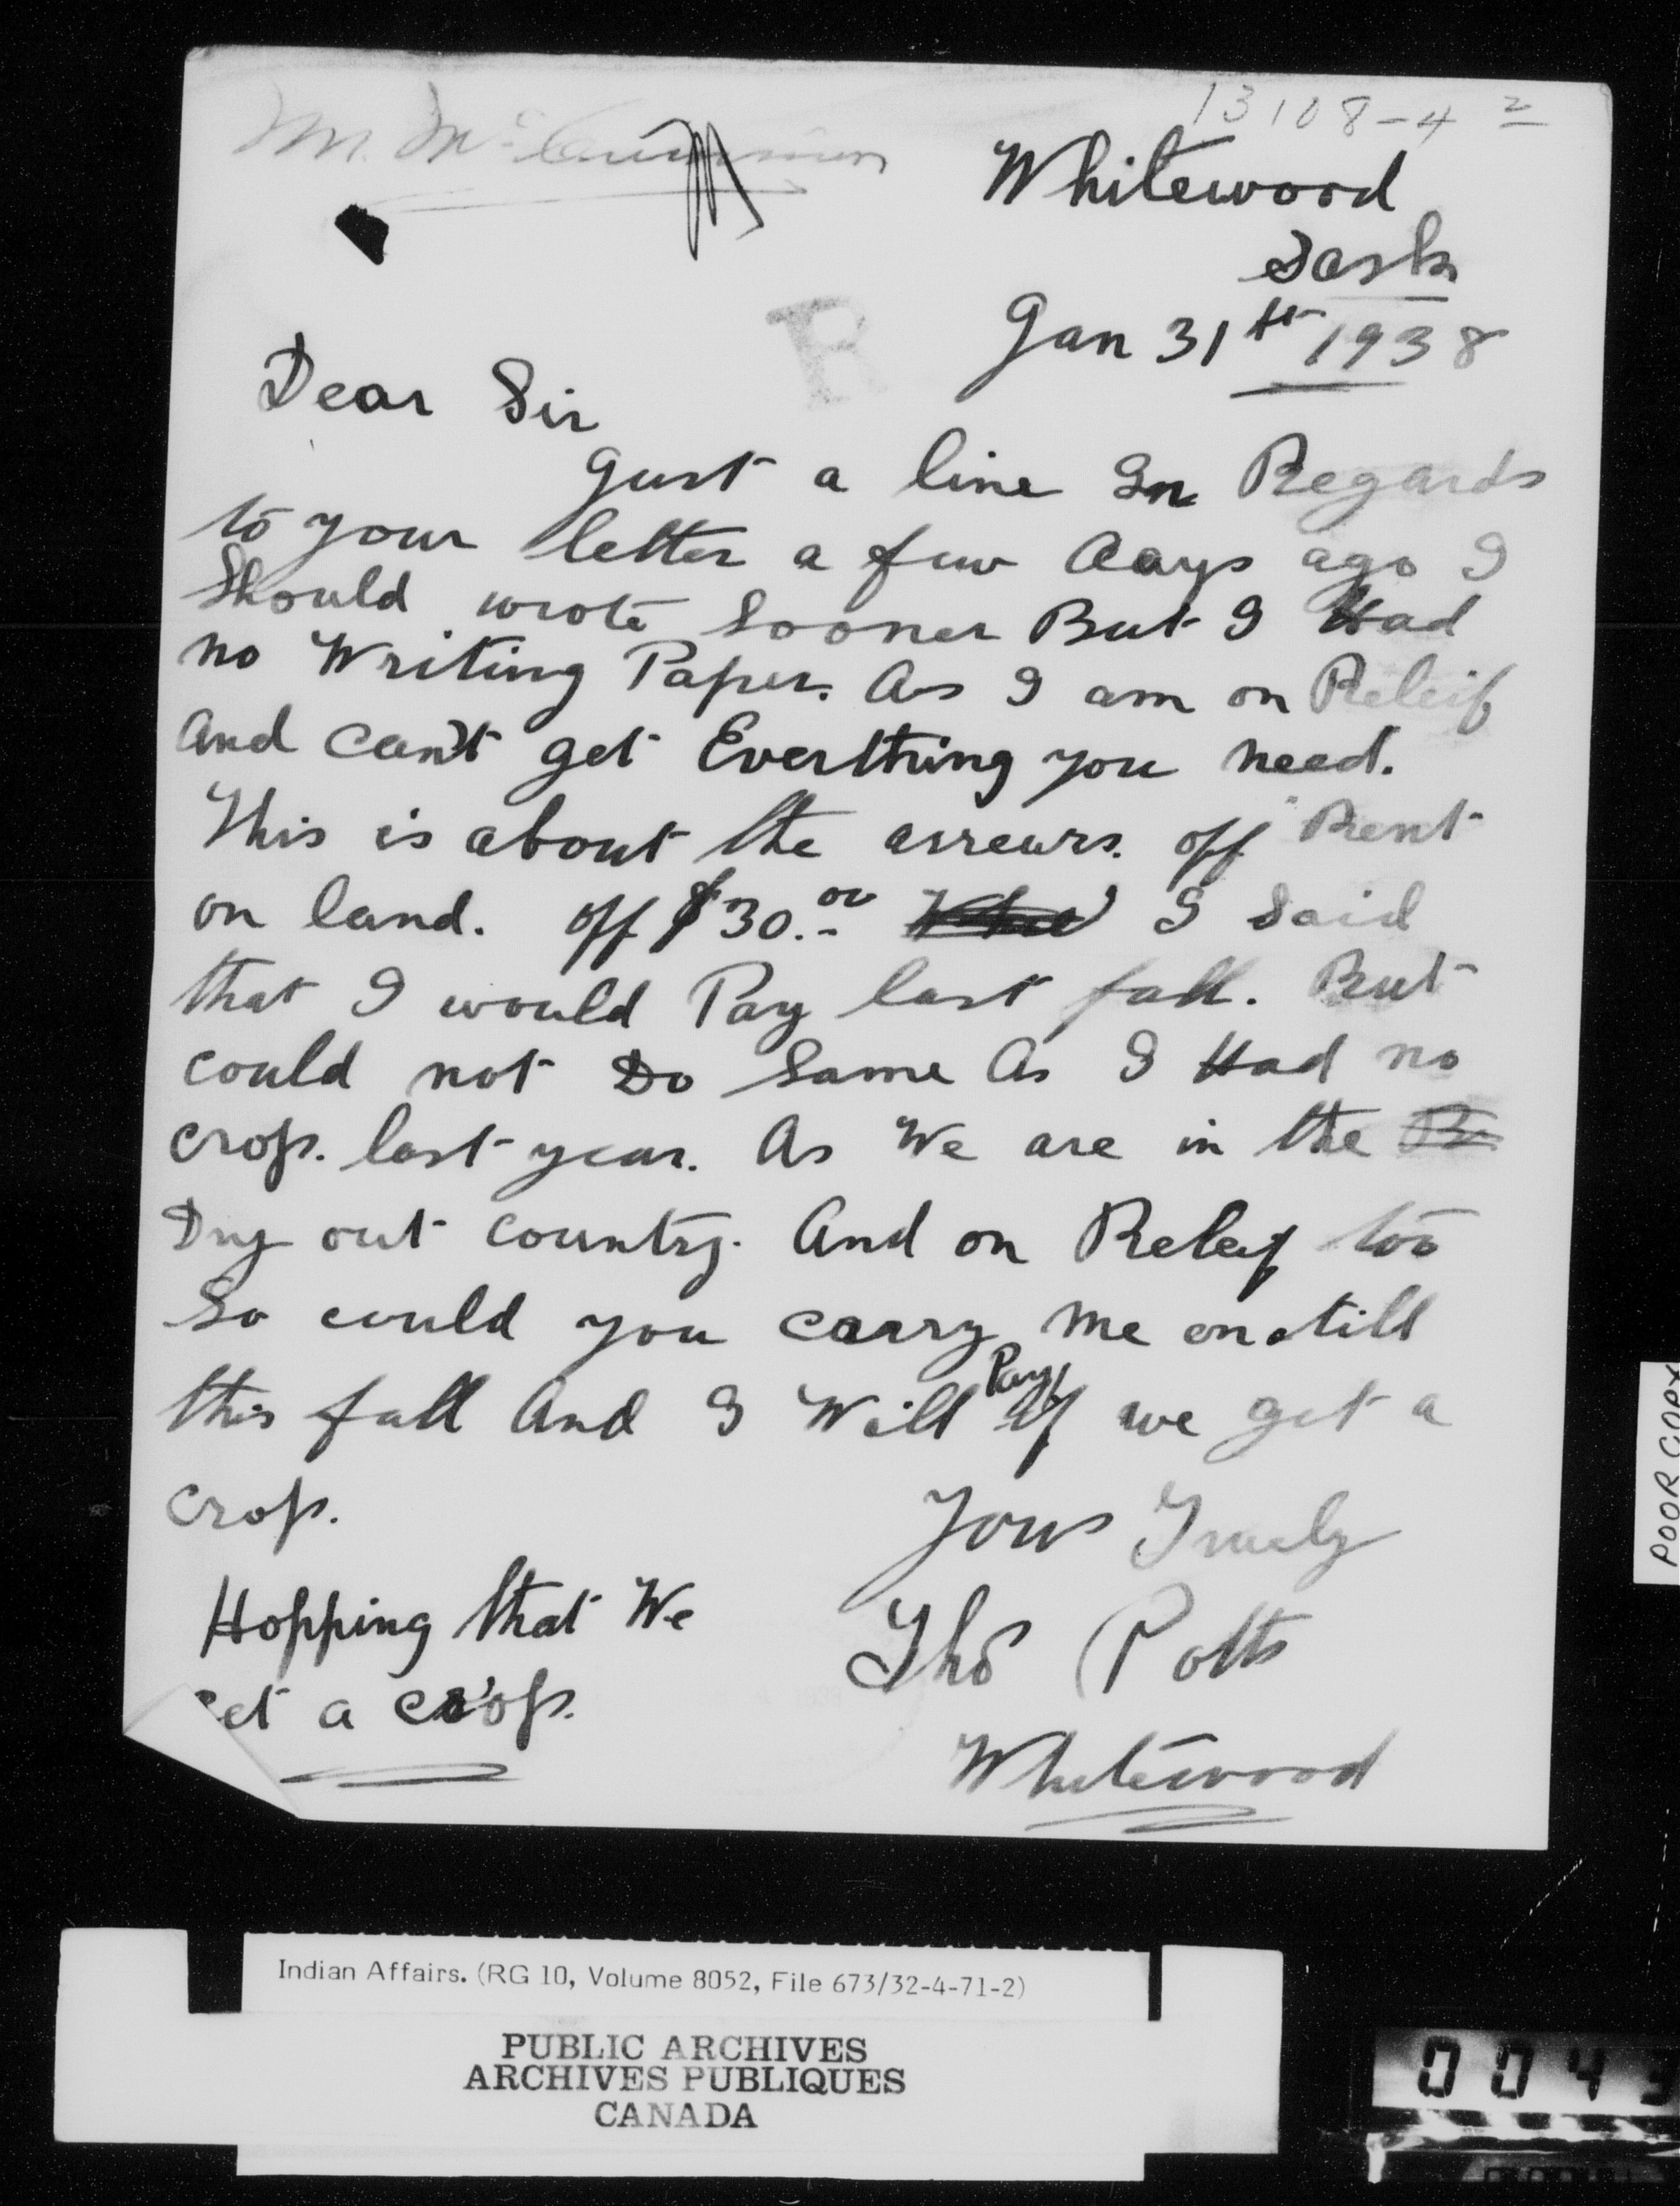 13108-4 2
Mr. Mc
Whitewood
Sask
Jan 31st 1938
R
Dear Sir
Just a line In Regards
to your letter a few days ago I
Should wrote Sooner But I Had
no Writing Paper. As I am on Releif
And can't get Everthing you need.
This is about the arrears. off Rent
on land. off $30.00 I Said
that I would Pay last fall. But
could not Do Same As I Had no
crop. last year. As We are in the
Dry out country. And on Releif too
So could you carry me on till
this fall And I Will Pay if we get a
crop.
Yours Truely
Hopping that We
Thos Potts
et a crop.
Whitewood
POOR COPY
Indian Affairs. (RG 10, Volume 8052, File 673/32-4-71-2)
PUBLIC ARCHIVES
ARCHIVES PUBLIQUES
CANADA
0043